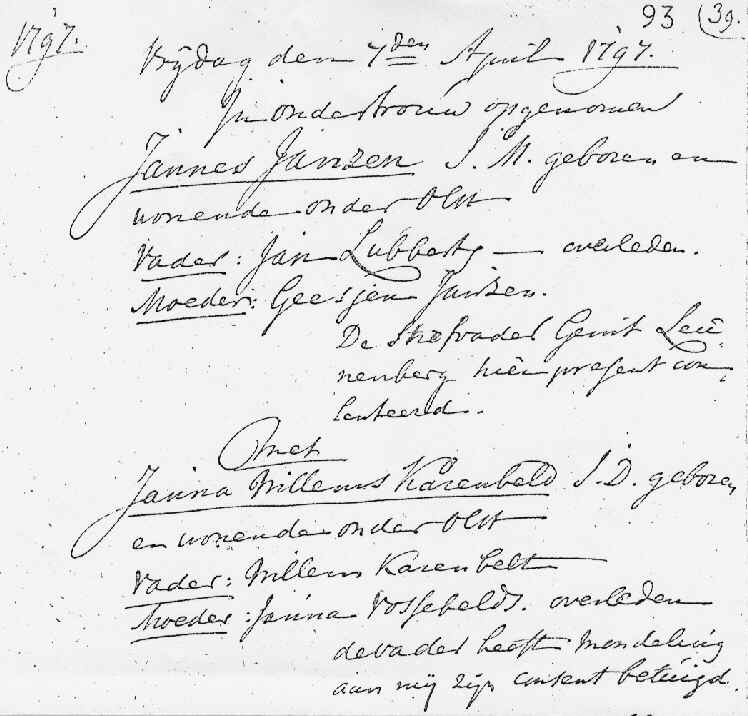 93 (39.
1797. Vrijdag den 7den April 1797.
In ondertrouw opgenomen
Jannes Janzen J. M. geboren en
wonende onder Olst
Vader: Jan Lubberts — overleden.
Moeder: Geesjen Janzen.
De Stiefvader Gerrit Leu-
nenberg hier present con-
senteerd.
met
Janna Willems Karenbeld J. D. geboren
en wonende onder Olst
Vader: Willem Karenbelt
Moeder: Janna Vossebelds. overleden
de vader heeft mondeling
aan mij zijn consent betuigd.